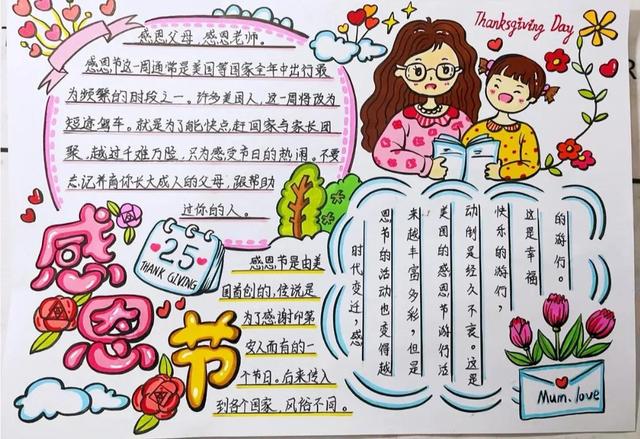 Thanksgiving Day
感恩父母,感恩老师。
感恩节这一周通常是美国等国家全年中出行最
为频繁的时段之一。许多美国人,这一周将改为
短途驾车。就是为了能快点赶回家与家长团
聚,越过千难万险,只为感受节日的热闹。不要
忘记养育你长大成人的父母,跟帮助
过你的人。
感恩节
25
THANK GIVING
感恩节是由美
国首创的,传说是
为了感谢印第
安人而有的一
个节日。后来传入
到各个国家,风俗不同。
时代变迁,感
恩节的活动也变得越
来越丰富多彩,但是
美国的感恩节游行活
动倒是经久不衰。这是
快乐的游行,
这是幸福
的游行。
Mum. love